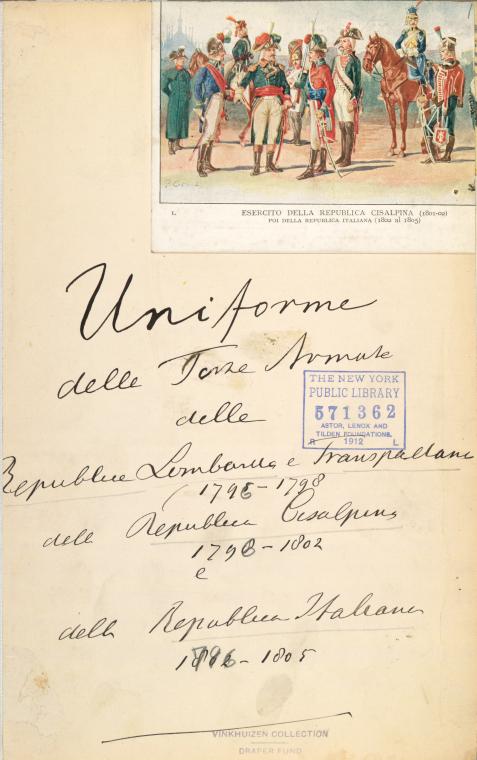 1.
ESERCITO DELLA REPUBLICA CISALPINA (1801-02)
POI DELLA REPUBLICA ITALIANA (1802 al 1805)
Uniforme
delle Forze Armate
delle
THE NEW YORK
PUBLIC LIBRARY
571362
ASTOR, LENOX AND
TILDEN FOUNDATIONS.
R 1912 L
Republiche Lombarda e Transpadana
1796-1798
della Republica Cisalpina
1798-1802
e
della Republica Italiana
1802-1805
VINKHUIZEN COLLECTION
DRAPER FUND